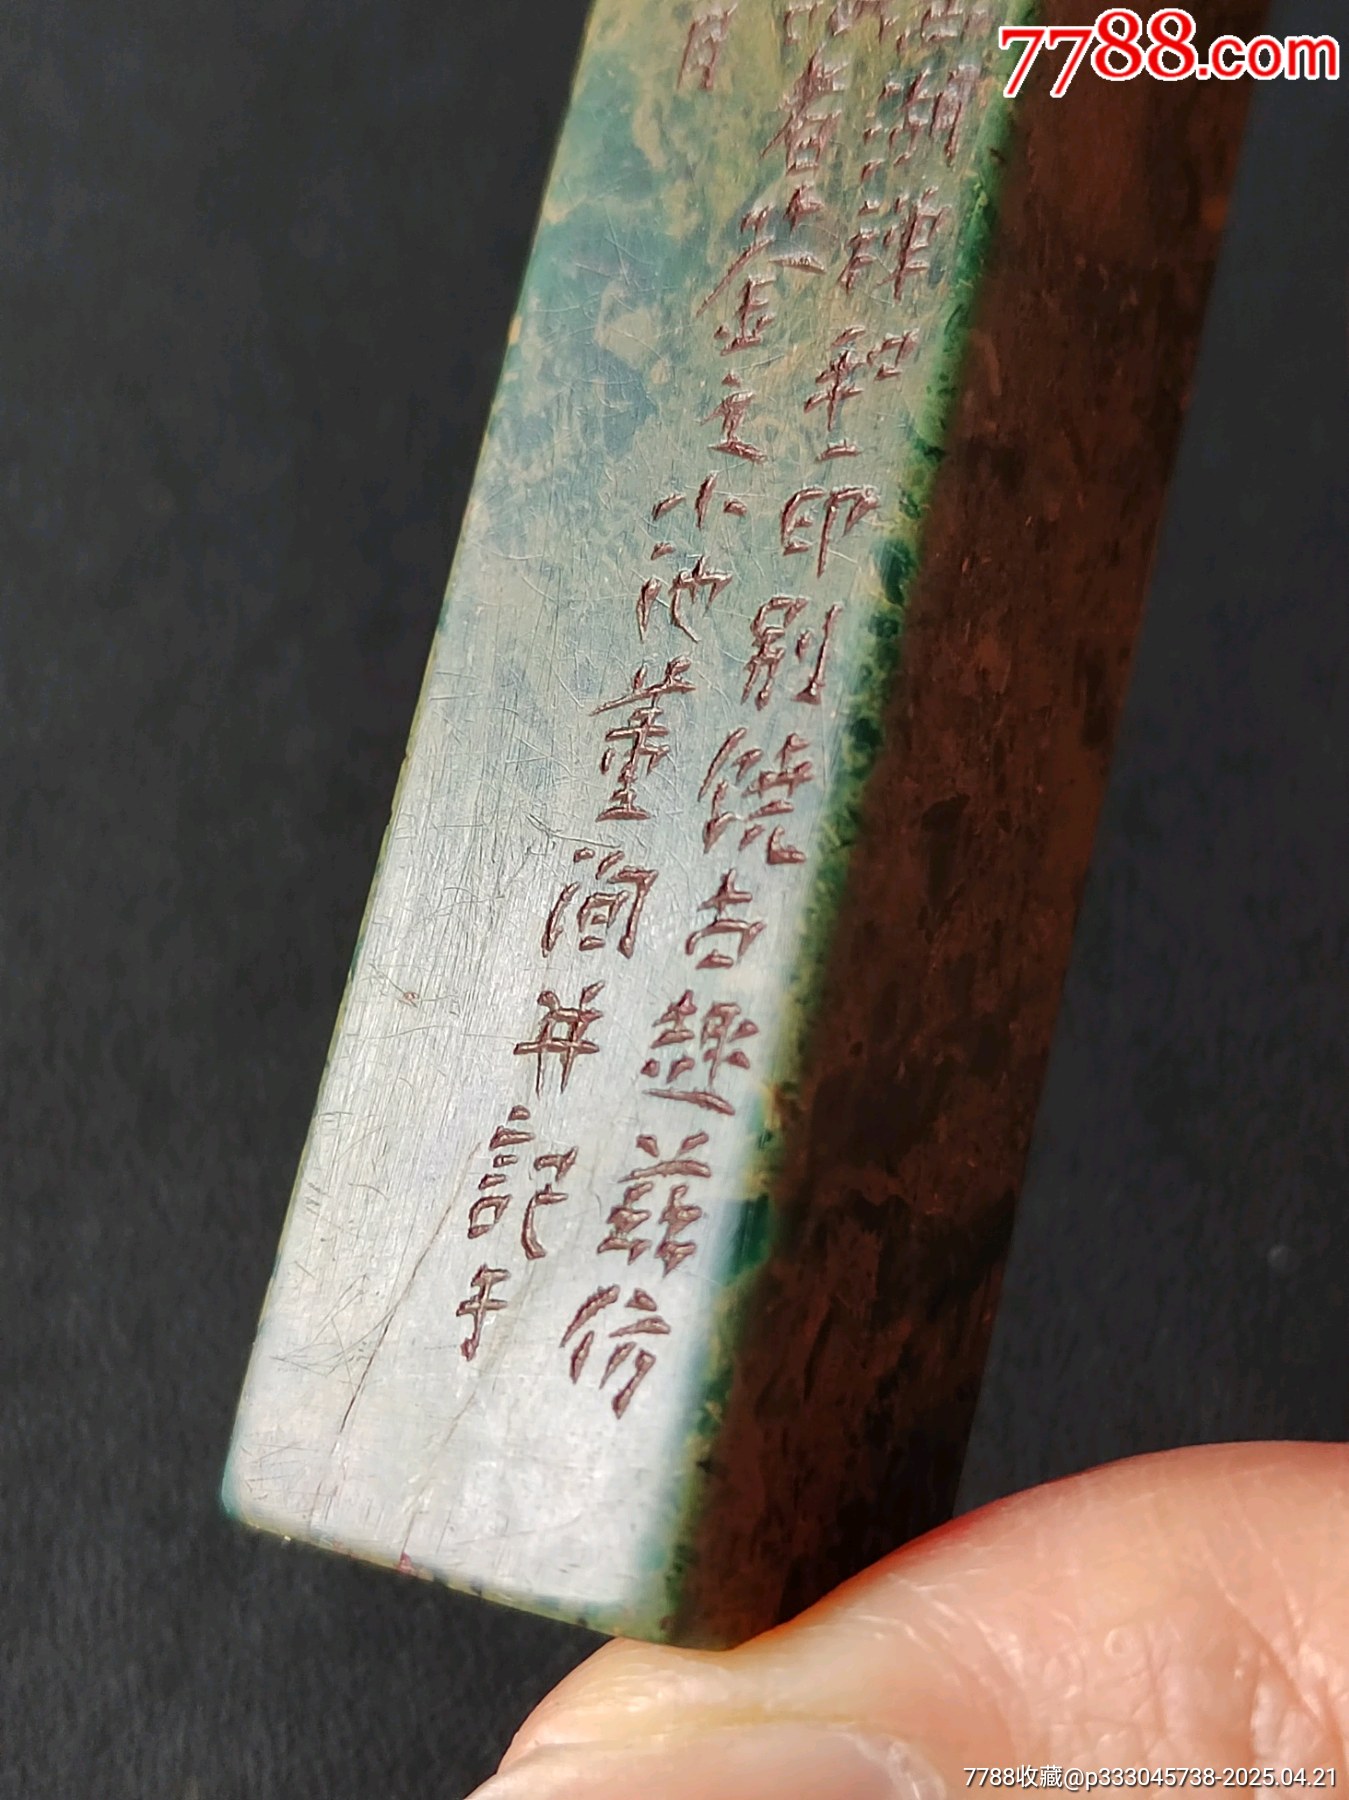 7788.com
湖禅和印别饶古趣兹仿
者叁金文小池董洵并記于
月
7788收藏@p333045738-2025.04.21